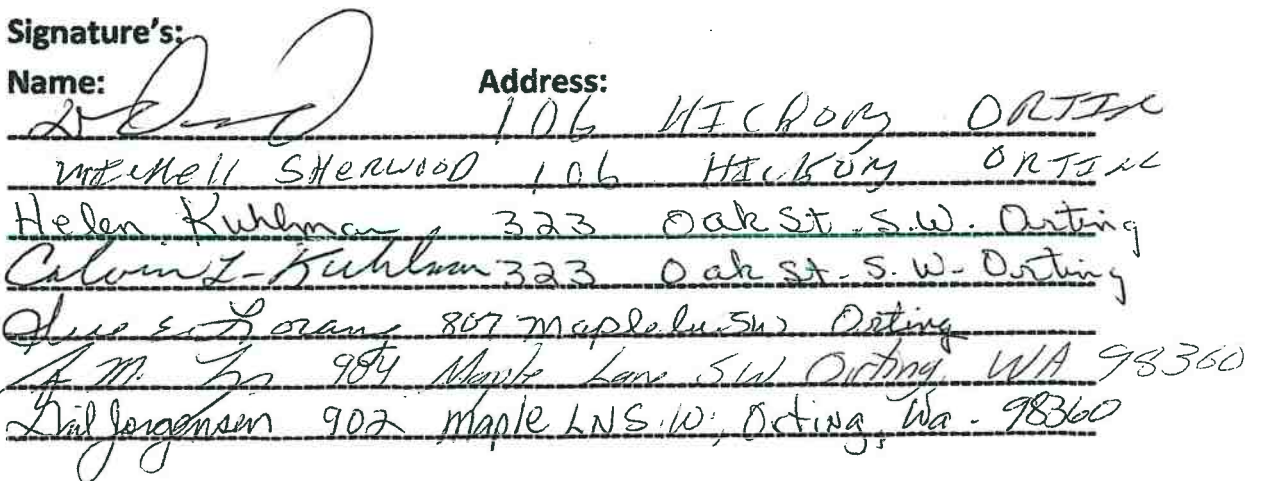 Signature's:
Name: Address:
106 HICKORY ORTING
MITCHELL SHERWOOD 106 HICKORY ORTING
Helen Kuhlman 323 Oak St. S.W. Orting
Calvin L Kuhlman 323 Oak St. S.W. Orting
807 Maple Ln. SW Orting
904 Maple Lane SW Orting, WA 98360
Gail Jorgensen 902 Maple LN S.W., Orting, Wa. 98360